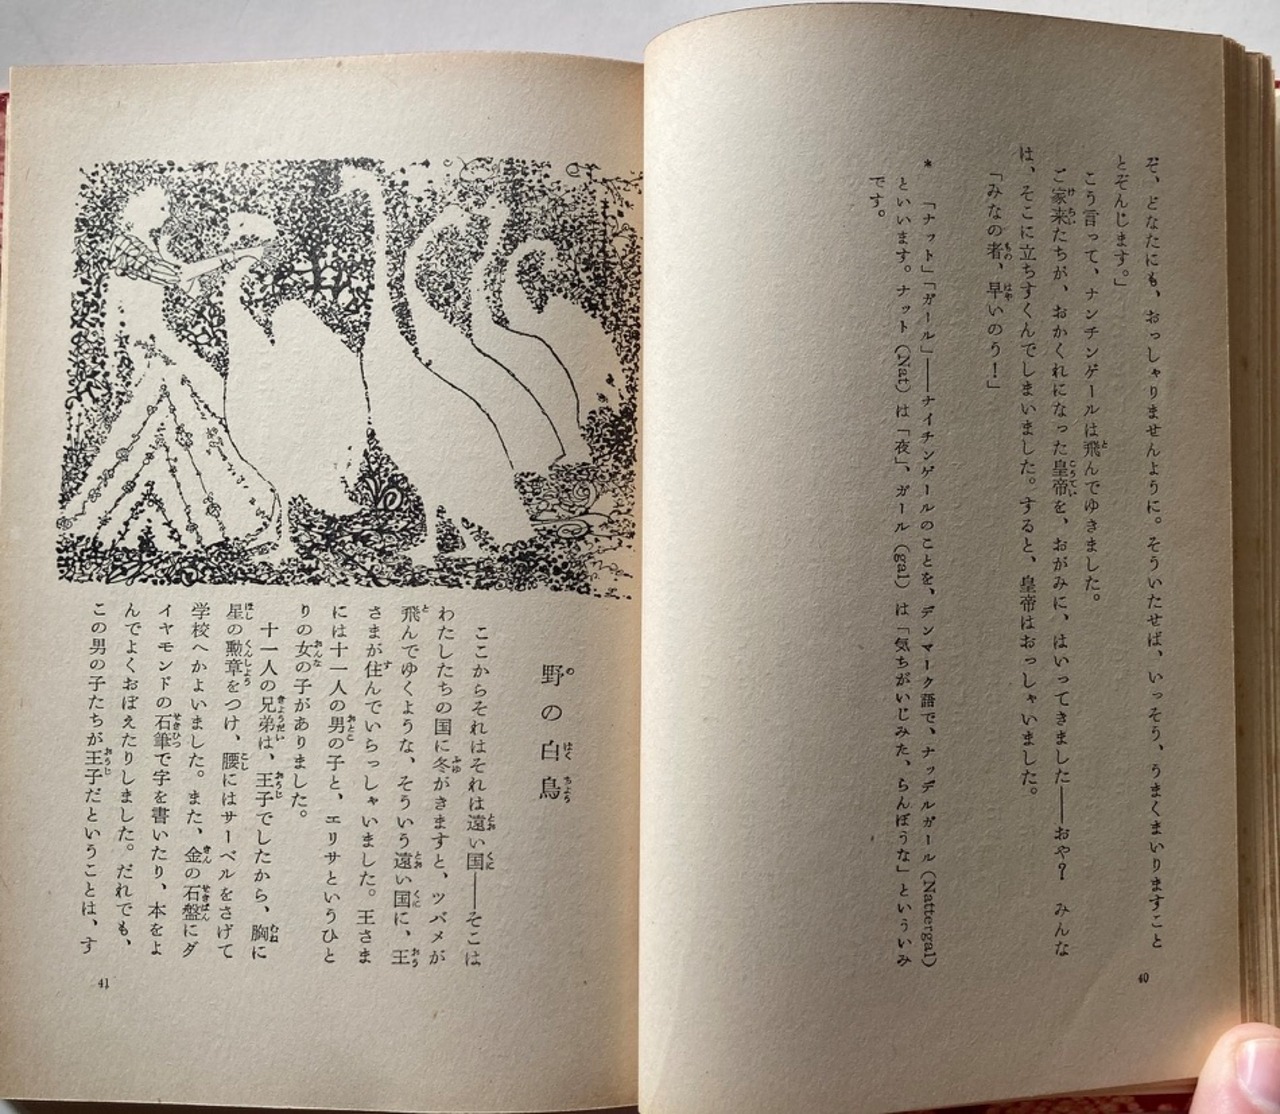 ぞ、どなたにも、おっしゃりませんように。そういたせば、いっそう、うまくまいりますこと
とぞんじます。」
こう言って、ナンチンゲールは飛んでゆきました。
ご家来たちが、おかくれになった皇帝を、おがみに、はいってきました――おや？　みんな
は、そこに立ちすくんでしまいました。すると、皇帝はおっしゃいました。
「みなの者、早いのう！」
＊　「ナット」「ガール」――ナイチンゲールのことを、デンマーク語で、ナッデルガール（Nattergal）
といいます。ナット（Nat）は「夜」、ガール（gal）は「気ちがいじみた、らんぼうな」といういみ
です。
40
野の白鳥
ここからそれはそれは遠い国――そこは
わたしたちの国に冬がきますと、ツバメが
飛んでゆくような、そういう遠い国に、王
さまが住んでいらっしゃいました。王さま
には十一人の男の子と、エリサというひと
りの女の子がありました。
十一人の兄弟は、王子でしたから、胸に
星の勲章をつけ、腰にはサーベルをさげて
学校へかよいました。また、金の石盤にダ
イヤモンドの石筆で字を書いたり、本をよ
んでよくおぼえたりしました。だれでも、
この男の子たちが王子だということは、す
41